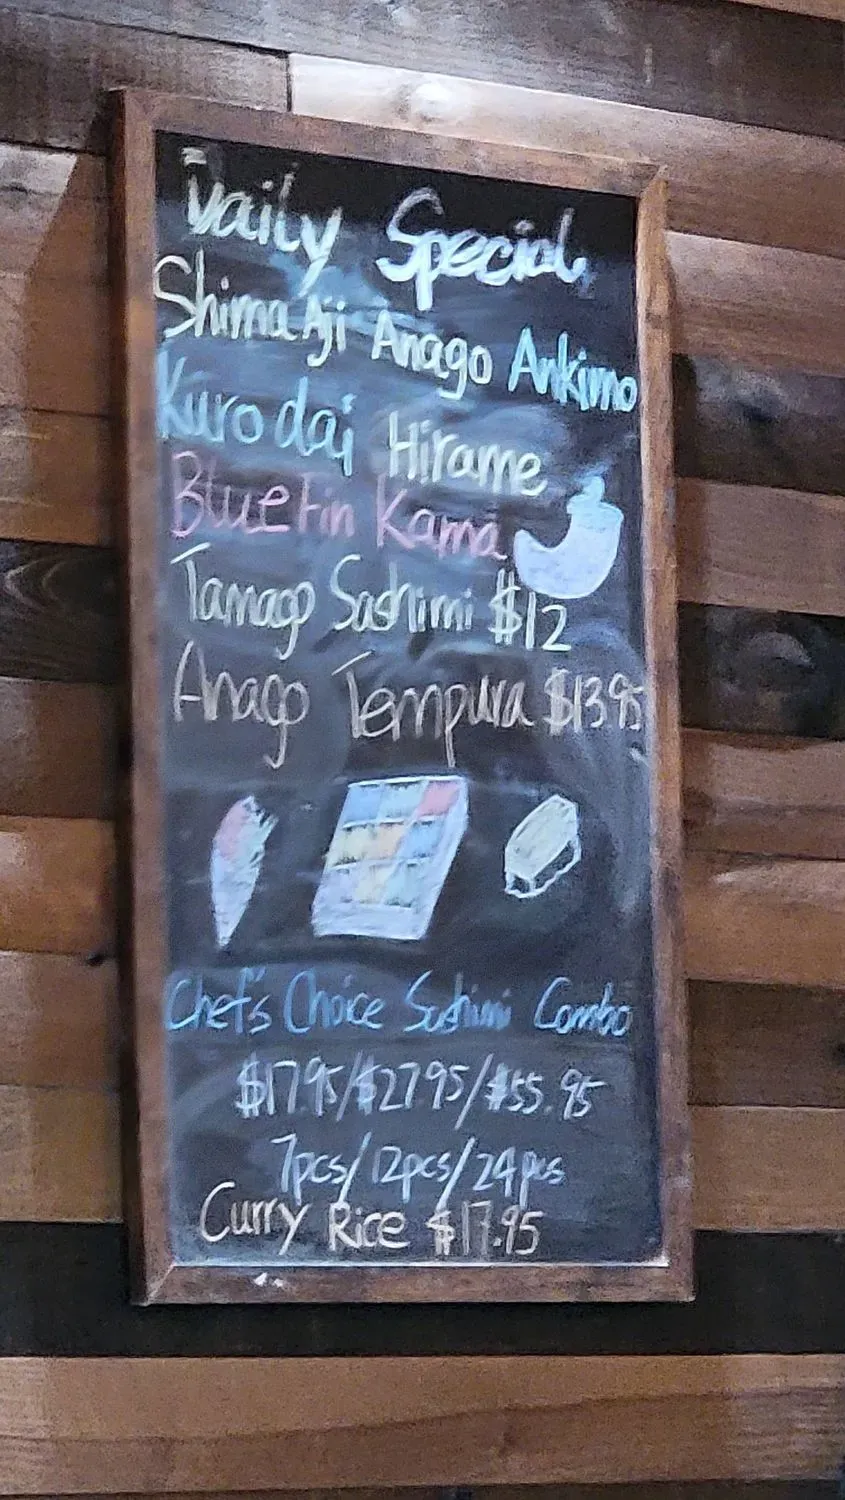 Daily Special
Shima Aji Anago Ankimo
Kurodai Hirame
Blue Fin Kama
Tamago Sashimi $12
Anago Tempura $13.95
Chef's Choice Sashimi Combo
$17.95/$27.95/$55.95
7pcs/12pcs/24pcs
Curry Rice $17.95